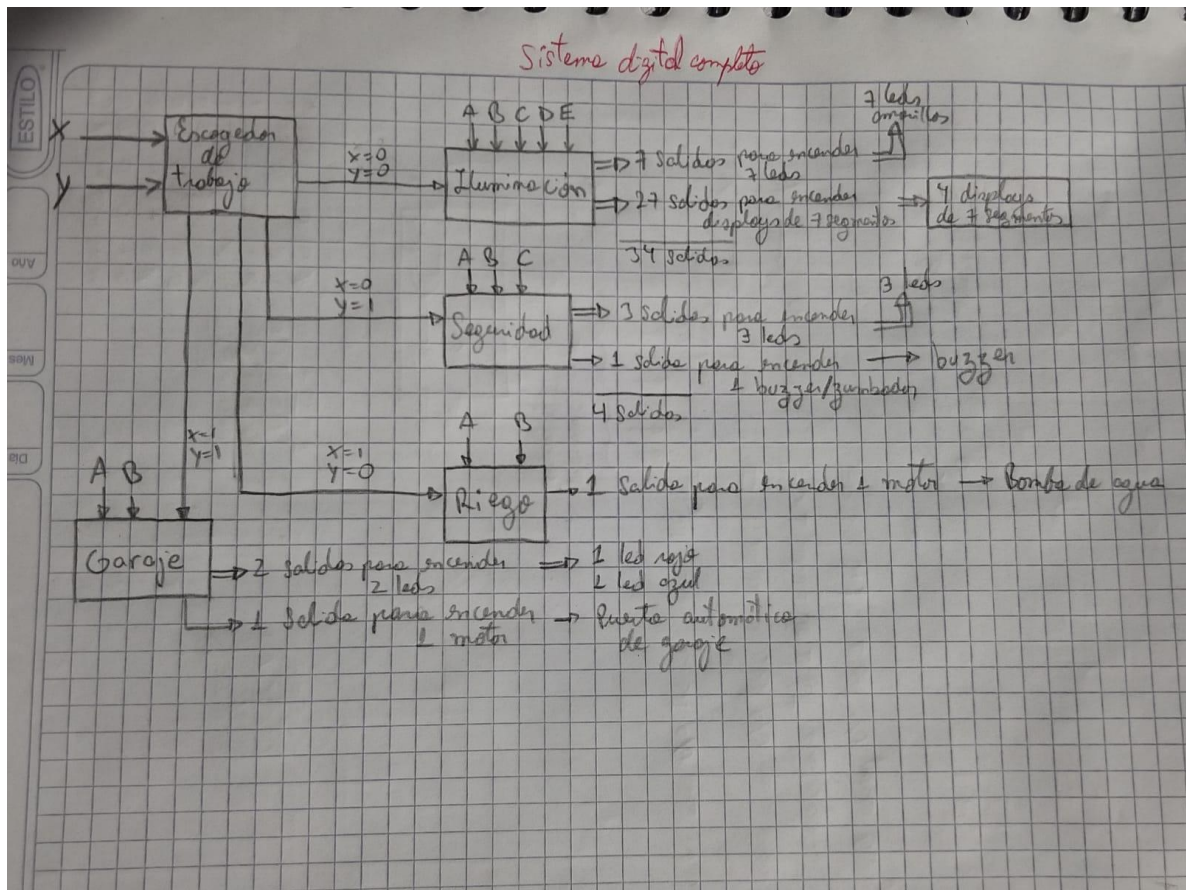 Sistema digital completo
ESTILO
Año
Mes
Día
X
Y
Escogedor
de
trabajo
X=0
Y=0
A B C D E
Iluminación
7 salidas para encender
7 leds
7 leds
amarillos
27 salidas para encender
displays de 7 segmentos
4 displays
de 7 segmentos
34 salidas
X=0
Y=1
A B C
Seguridad
3 salidas para encender
3 leds
3 leds
1 salida para encender
1 buzzer/zumbador
buzzer
4 salidas
X=1
Y=0
A B
Riego
1 salida para encender 1 motor
Bomba de agua
X=1
Y=1
A B
Garaje
2 salidas para encender
2 leds
1 led rojo
1 led azul
1 salida para encender
1 motor
Puerta automática
de garaje